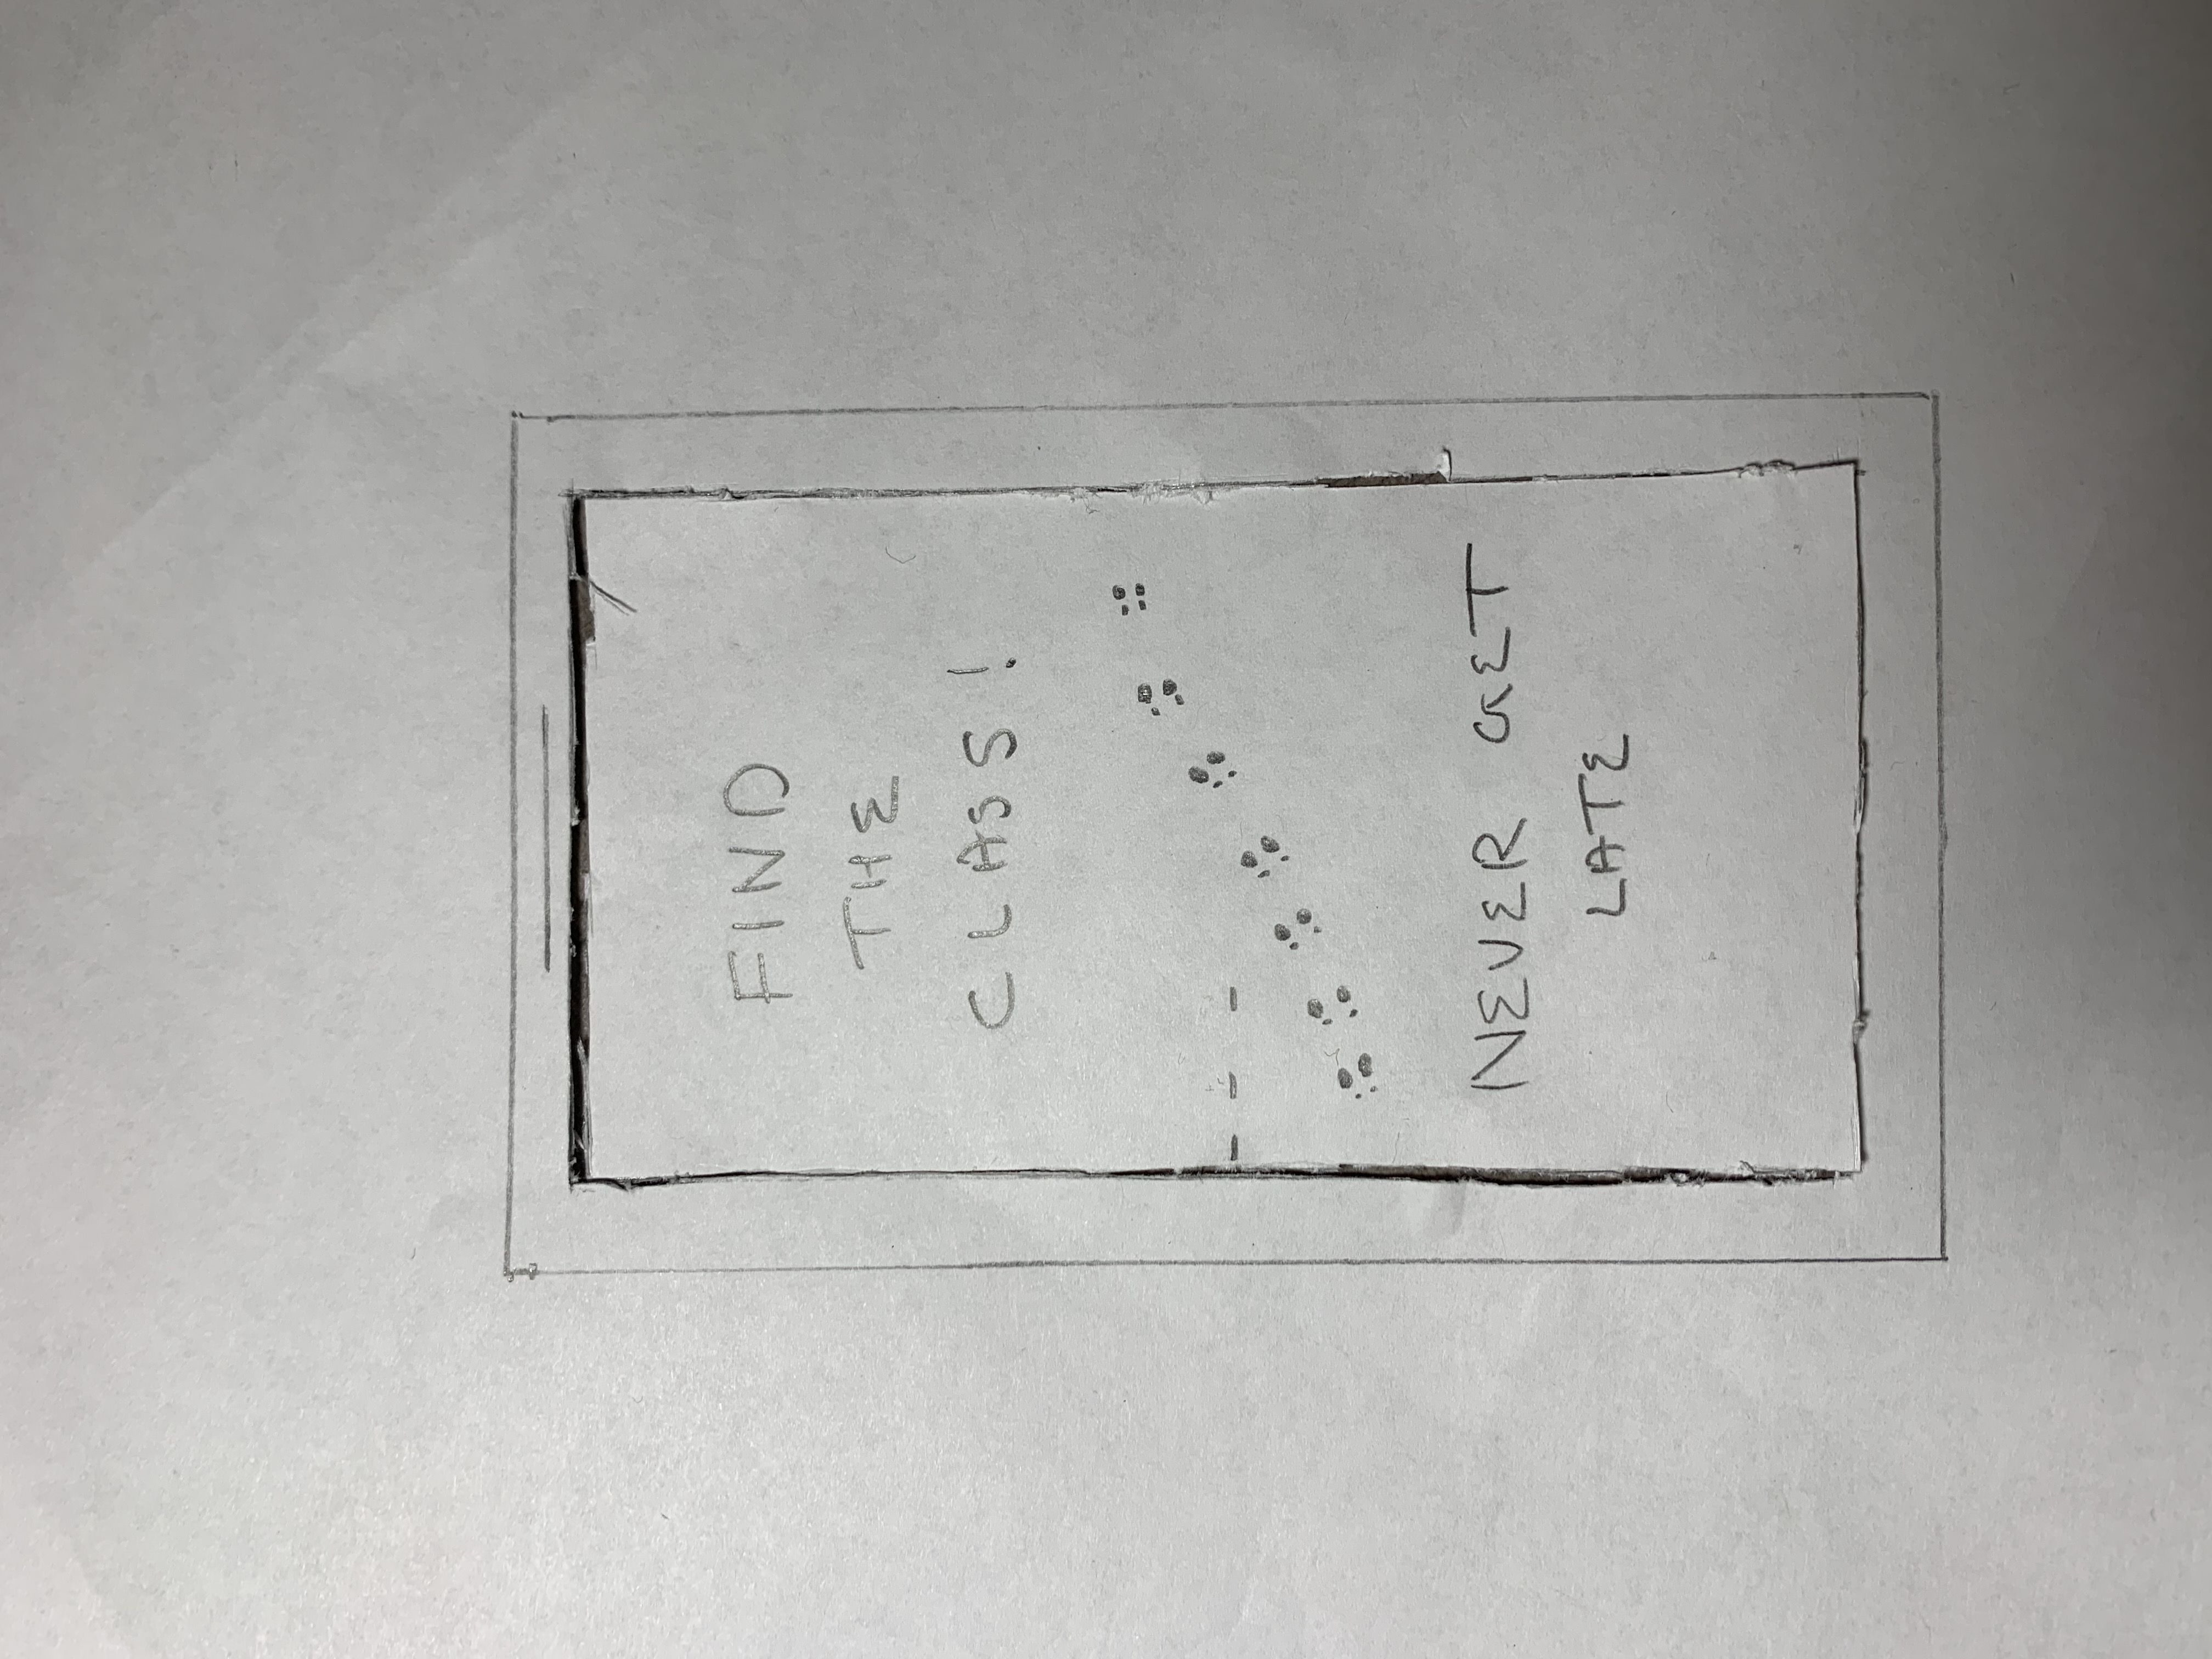 FIND
THE
CLASS!
NEVER GET
LATE